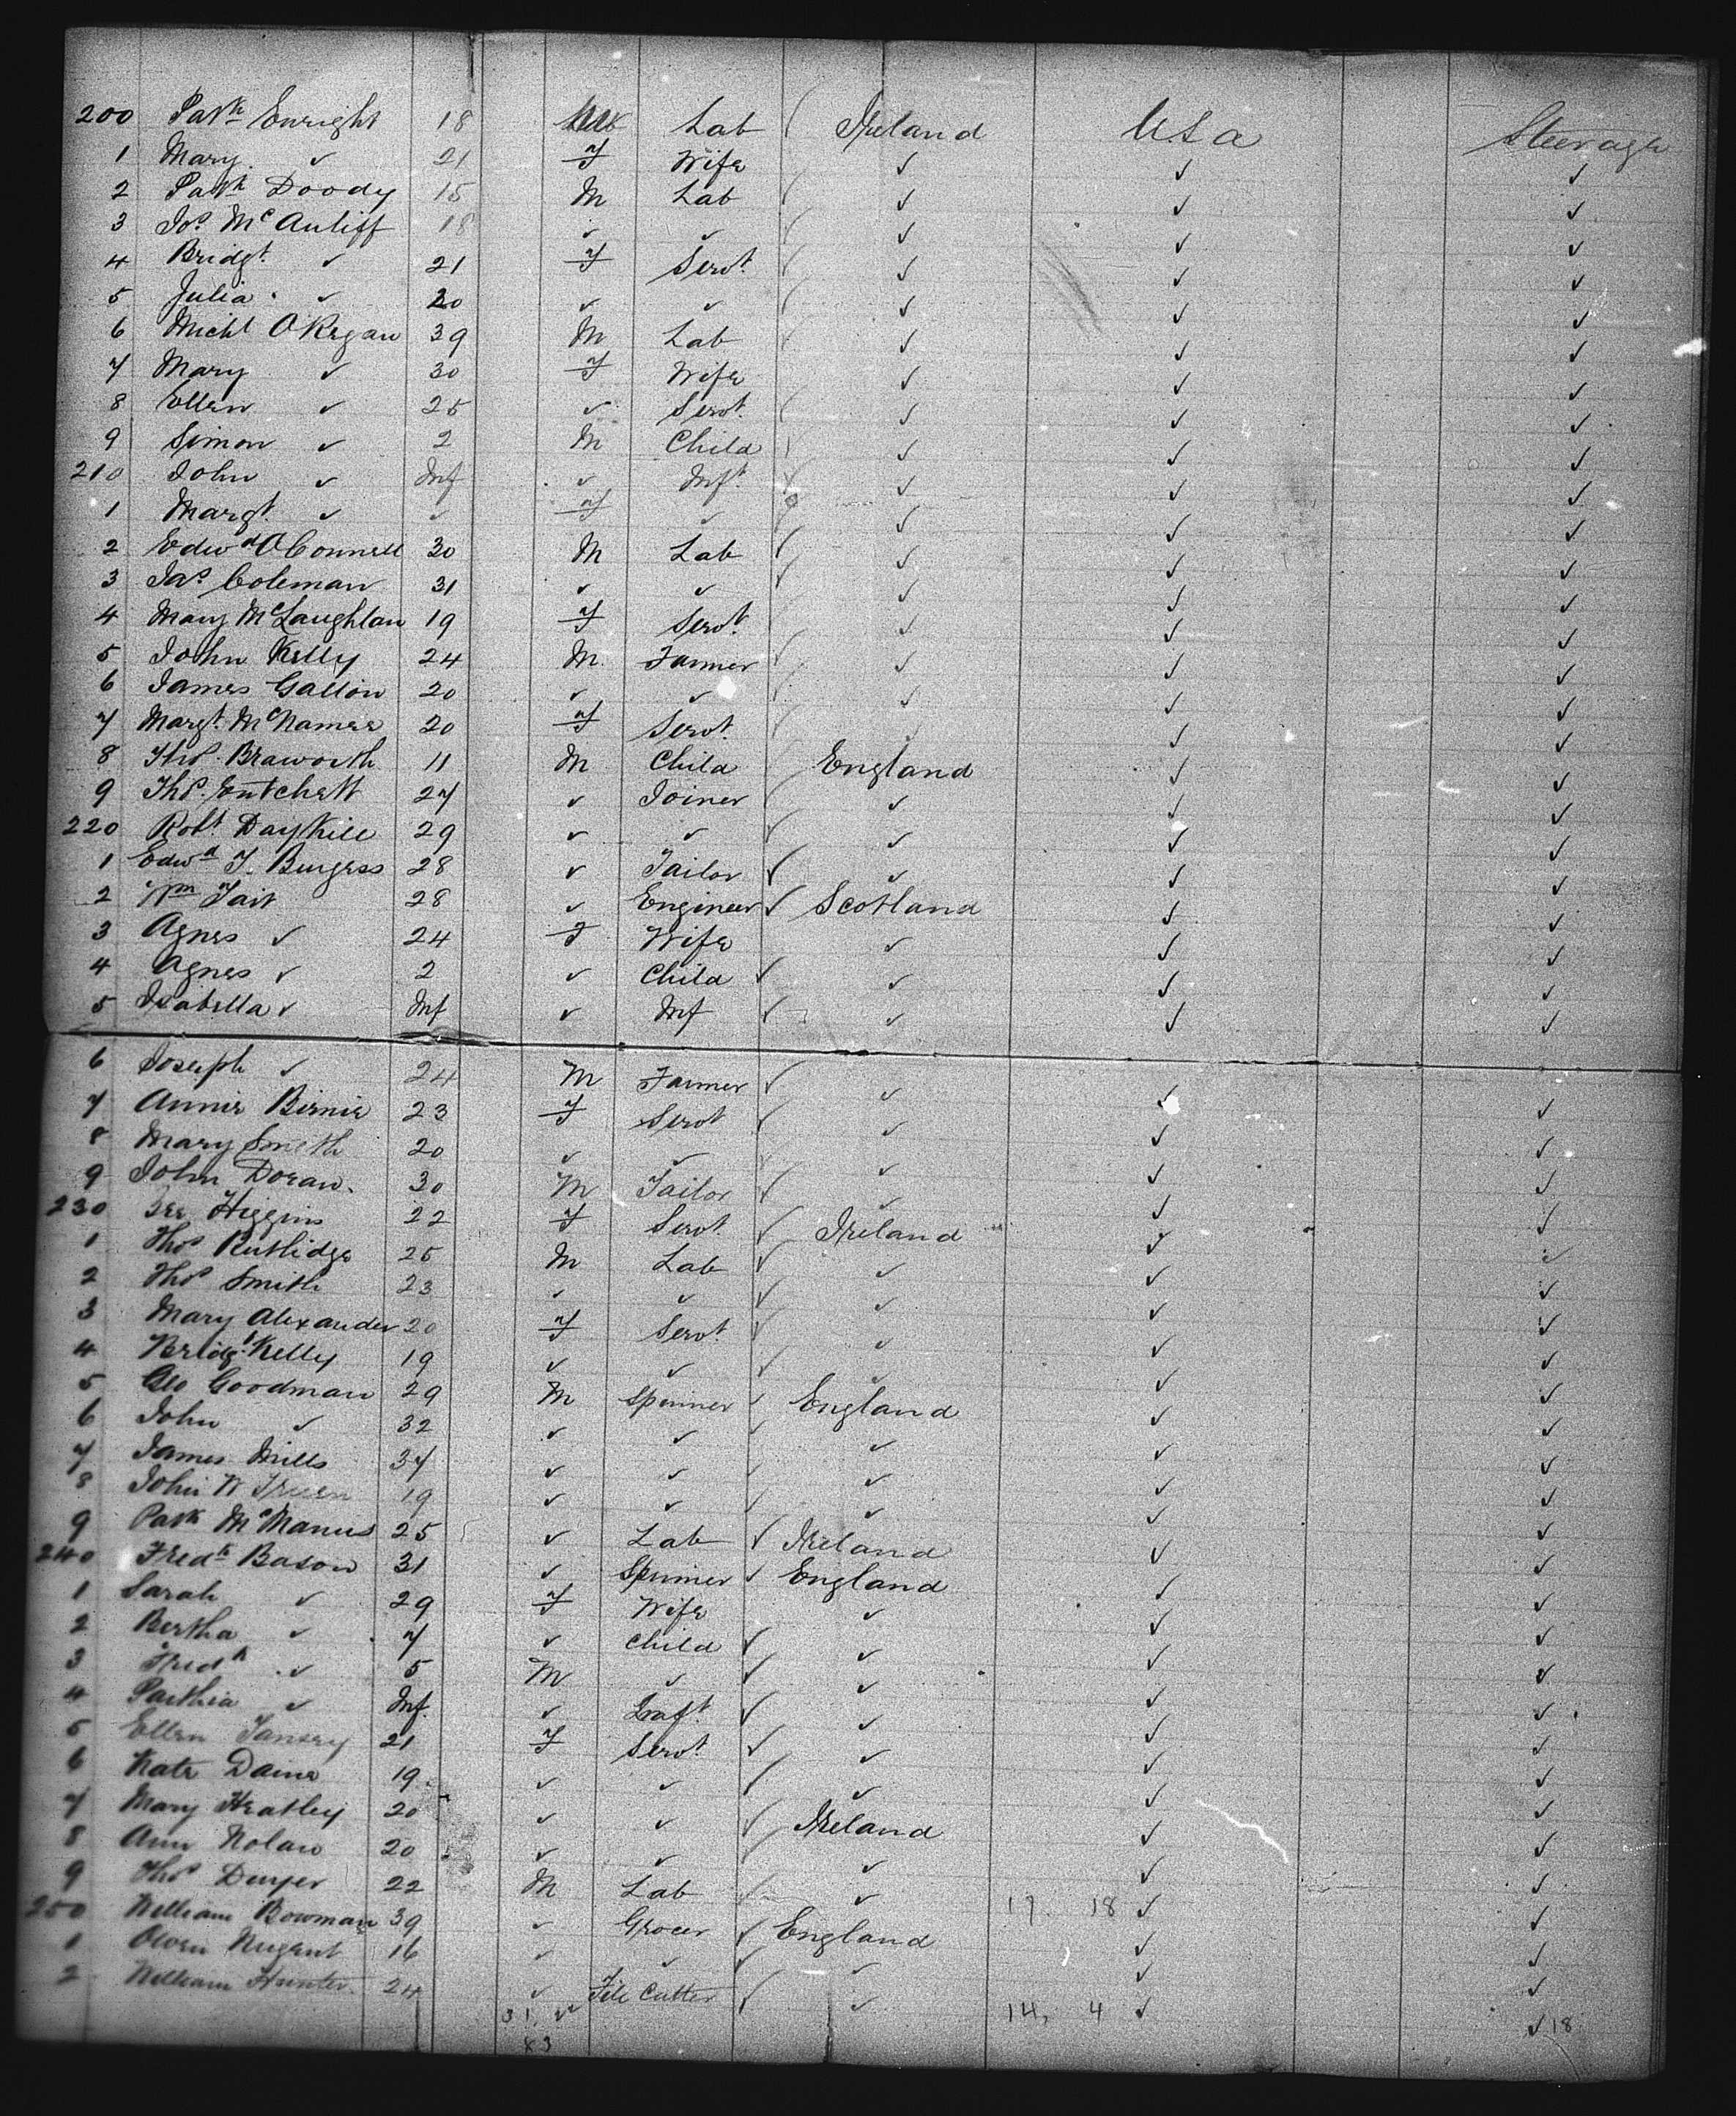 200 Patk Enright 18 Male Lab Ireland U.S.a Steerage
1 Mary ✓ 21 F Wife ✓ ✓ ✓
2 Patk Doody 15 M Lab ✓ ✓ ✓
3 Jos. McAuliff 18 ✓ ✓ ✓ ✓ ✓
4 Bridgt. ✓ 21 F Servt. ✓ ✓ ✓
5 Julia ✓ 20 ✓ ✓ ✓ ✓ ✓
6 Michl O'Regan 39 M Lab ✓ ✓ ✓
7 Mary ✓ 30 F Wife ✓ ✓ ✓
8 Ellen ✓ 25 ✓ Servt. ✓ ✓ ✓
9 Simon ✓ 2 M Child ✓ ✓ ✓
210 John ✓ Inf ✓ Inft. ✓ ✓ ✓
1 Margt. ✓ ✓ F ✓ ✓ ✓ ✓
2 Edwd O'Connell 30 M Lab ✓ ✓ ✓
3 Jas. Coleman 31 ✓ ✓ ✓ ✓ ✓
4 Mary McLaughlan 19 F Servt. ✓ ✓ ✓
5 John Kelly 24 M Farmer ✓ ✓ ✓
6 James Gallon 20 ✓ ✓ ✓ ✓ ✓
7 Margt. McNamee 20 F Servt. ✓ ✓
8 Thos. Braworth 11 M Child England ✓ ✓
9 Thos. 27 ✓ Joiner ✓ ✓ ✓
220 Robt. Daykill 29 ✓ ✓ ✓ ✓ ✓
1 Edwd T. Burgess 28 ✓ Tailor ✓ ✓ ✓
2 Wm Tait 28 ✓ Engineer Scotland ✓ ✓
3 Agnes ✓ 24 F Wife ✓ ✓ ✓
4 Agnes ✓ 2 ✓ Child ✓ ✓ ✓
5 Isabella ✓ Inf ✓ Inf ✓ ✓ ✓
6 Joseph ✓ 24 M Farmer ✓ ✓ ✓
7 Annie Birnie 23 F Servt ✓ ✓ ✓
8 Mary Smith 20 ✓ ✓ ✓ ✓ ✓
9 John Doran 30 M Tailor ✓ ✓ ✓
230 Higgins 22 F Servt. Ireland ✓ ✓
1 Thos Rutlidge 25 M Lab ✓ ✓ ✓
2 Thos Smith 23 ✓ ✓ ✓ ✓ ✓
3 Mary Alexander 20 F Servt. ✓ ✓ ✓
4 Bridgt. Kelly 19 ✓ ✓ ✓ ✓ ✓
5 Geo Goodman 29 M Spinner England ✓ ✓
6 John ✓ 32 ✓ ✓ ✓ ✓ ✓
7 James Mills 34 ✓ ✓ ✓ ✓ ✓
8 John W 19 ✓ ✓ ✓ ✓ ✓
9 Patk McManus 25 ✓ Lab Ireland ✓ ✓
240 Fredk Bason 31 ✓ Spinner England ✓ ✓
1 Sarah ✓ 29 F Wife ✓ ✓ ✓
2 Bertha ✓ 7 ✓ Child ✓ ✓ ✓
3 Fredk ✓ 5 M ✓ ✓ ✓ ✓
4 Parthia ✓ Inf. ✓ Inft. ✓ ✓ ✓
5 Ellen Tansey 21 F Servt. ✓ ✓ ✓
6 Kate Daine 19 ✓ ✓ ✓ ✓ ✓
7 Mary Heatley 20 ✓ ✓ Ireland ✓ ✓
8 Ann Nolan 20 ✓ ✓ ✓ ✓ ✓
9 Thos Dwyer 22 M Lab ✓ 17. 18 ✓ ✓
250 William Bowman 39 ✓ Grocer England ✓ ✓
1 Owen Nugent 16 ✓ ✓ ✓ ✓ ✓
2 William Hunter 24 ✓ File Cutter ✓ 14, 4 ✓ ✓ 18
31,
83